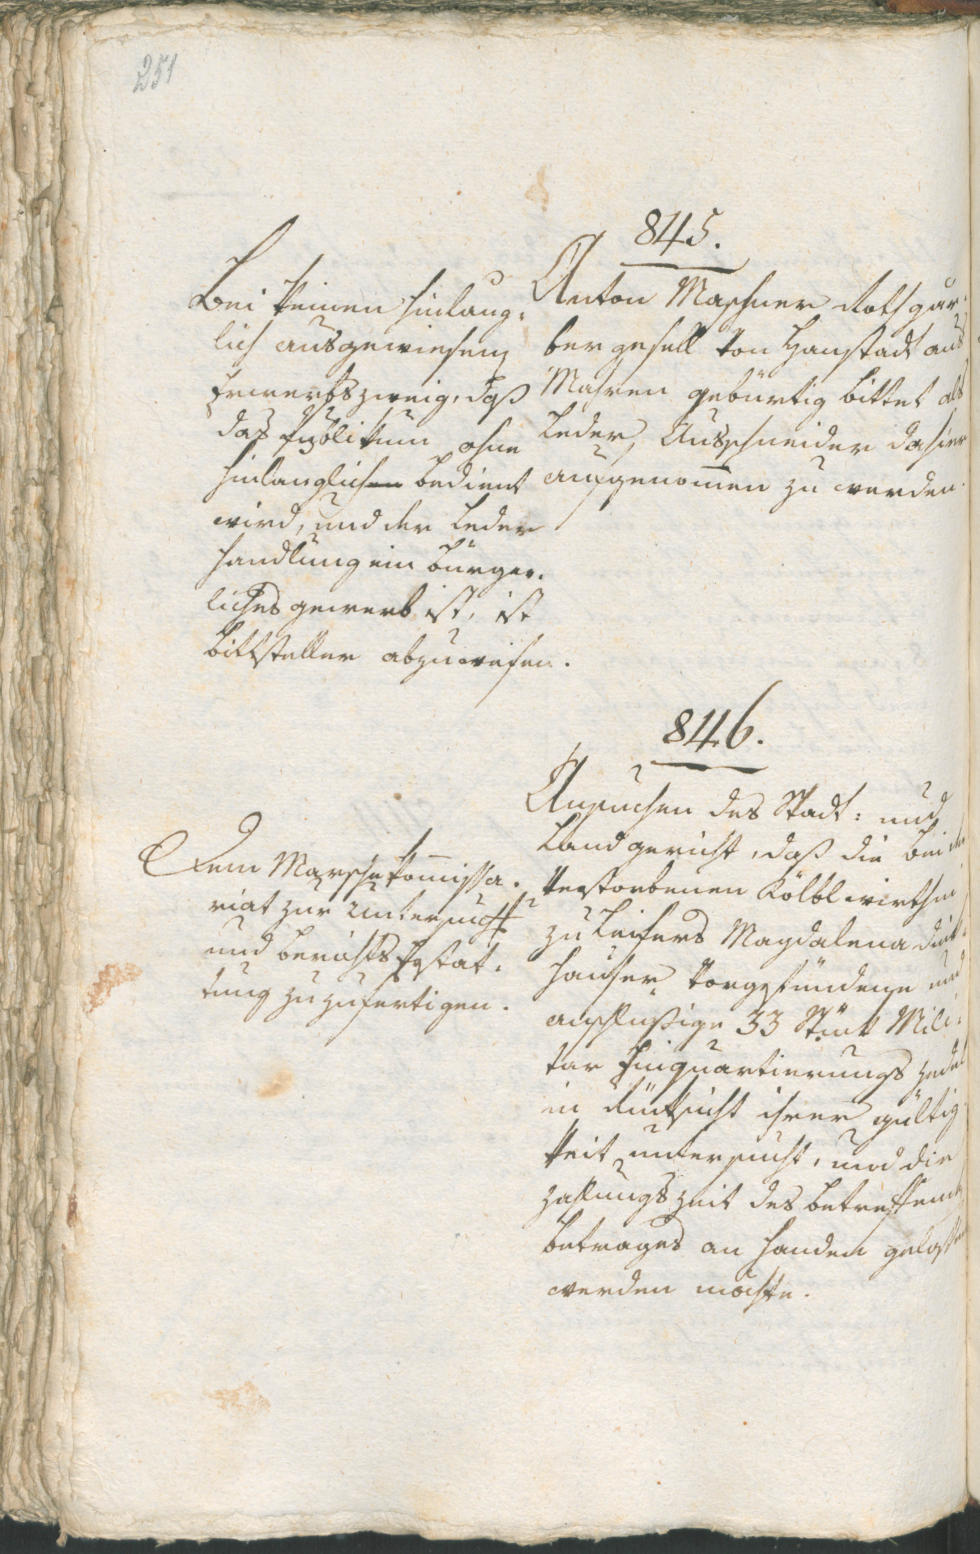 251
845.
Anton Maschner Rothgär¬
bergesell von Hanstadt aus
Mähren gebürtig bittet als
Leder Ausschneider dahier
aufgenommen zu werden.
Bei keinen hinläng¬
lich ausgewiesenen
Erwerbszweig, daß
das Publikum ohne
hinlänglich bedient
wird, und der Leder
handlung ein bürger¬
liches gewerb ist, ist
Bittsteller abzuweisen.
846.
Ansuchen des Stadt: und
Landgericht, daß die bei der
verstorbenen Kölblwirthin
zu Leifers Magdalena
hauser vorgefundene und
anschlußige 33 Stück Mili¬
tar Einquartierungs zedel
in Rücksicht ihrer gültig¬
keit untersucht, und die
Zahlungszeit des betreffenden
Betrages an Handen gelassen
werden möchte.
Dem Marschkommissa¬
riat zur Untersuch¬
und Berichtserstat¬
tung zuzufertigen.